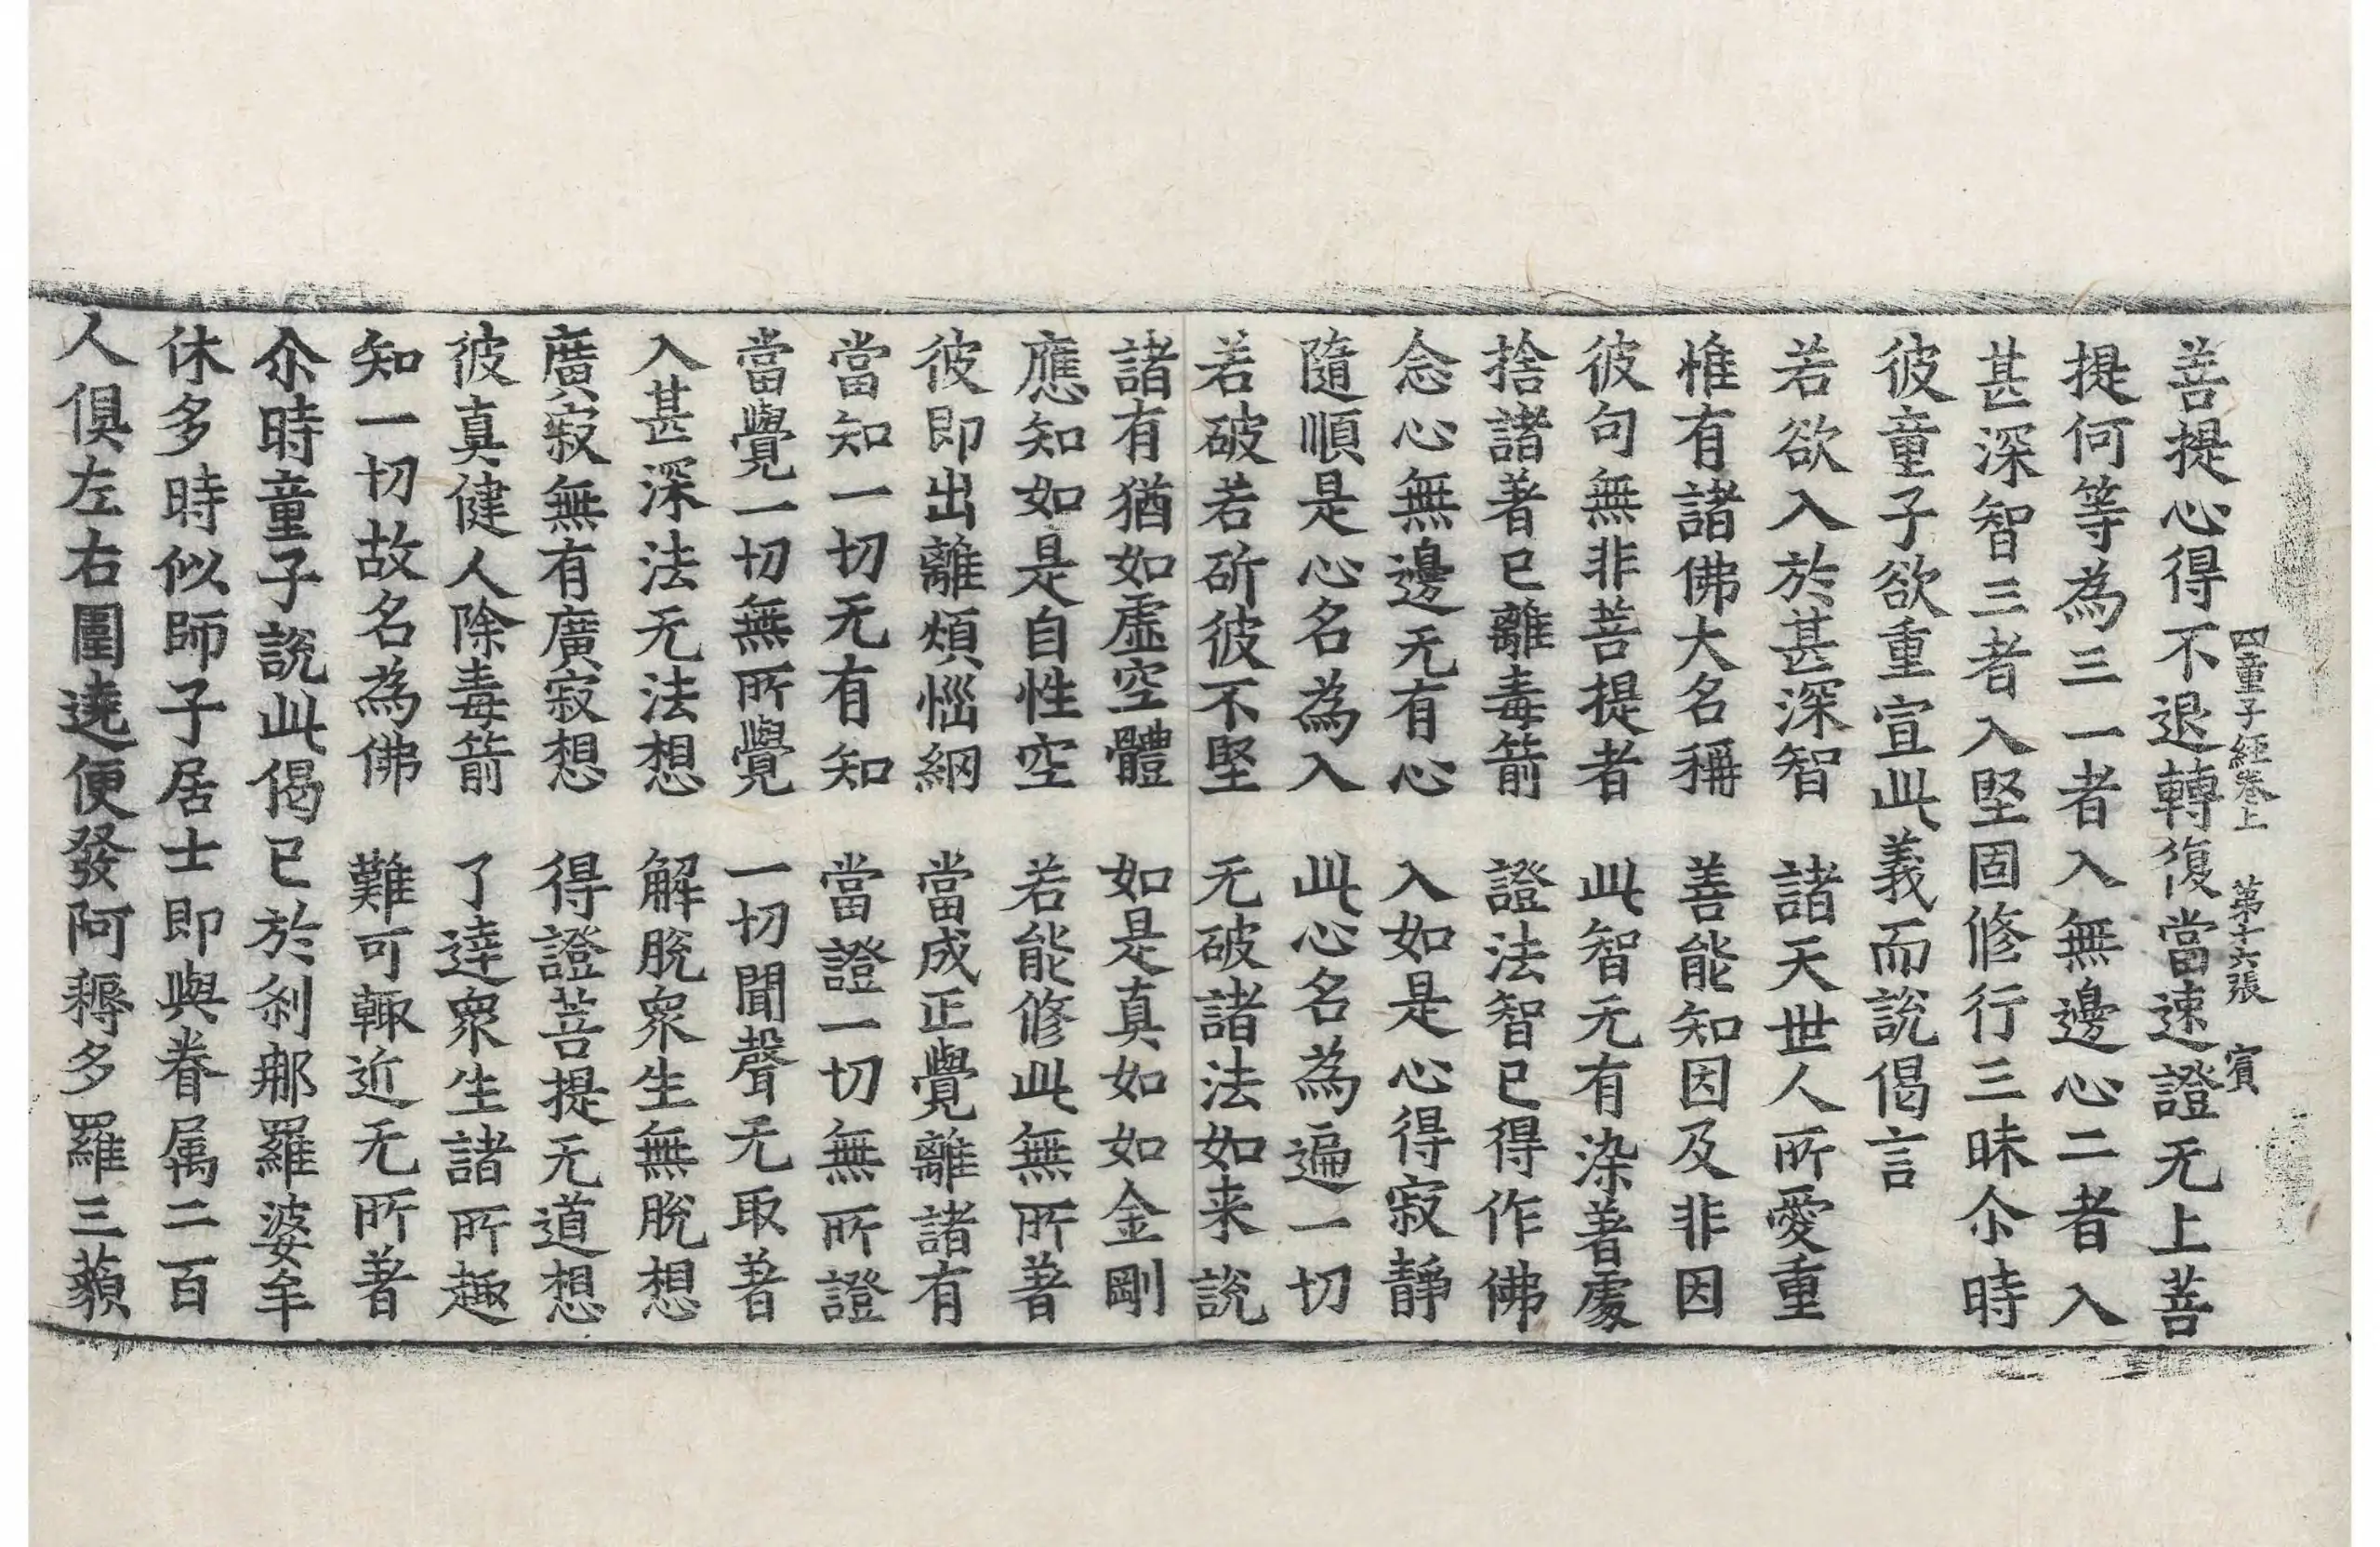 四童子經卷上　第十六張　賓
菩提心得不退轉復當速證无上菩
提何等為三一者入無邊心二者入
甚深智三者入堅固修行三昧尒時
彼童子欲重宣此義而說偈言
若欲入於甚深智　諸天世人所愛重
惟有諸佛大名稱　善能知因及非因
彼句無非菩提者　此智无有染著處
捨諸著已離毒箭　證法智已得作佛
念心無邊无有心　入如是心得寂靜
隨順是心名為入　此心名為遍一切
若破若斫彼不堅　无破諸法如来說
諸有猶如虛空體　如是真如如金剛
應知如是自性空　若能修此無所著
彼即出離煩惱網　當成正覺離諸有
當知一切无有知　當證一切無所證
當覺一切無所覺　一切聞聲无取著
入甚深法无法想　解脫衆生無脫想
廣寂無有廣寂想　得證菩提无道想
彼真健人除毒箭　了達衆生諸所趣
知一切故名為佛　難可輙近无所著
尒時童子說此偈已於刹那羅婆牟
休多時似師子居士即與眷属二百
人俱左右圍遶便發阿耨多羅三藐